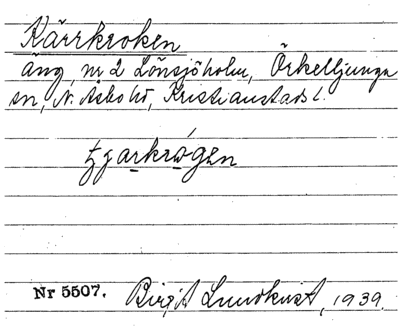 Kärrkroken
äng, nr 2 Lönsjöholm, Örkelljunga
sn, N. Åsbo hd, Kristianstads l.
tjarkrogen
Nr 5507. Birgit Lundkvist, 1939.